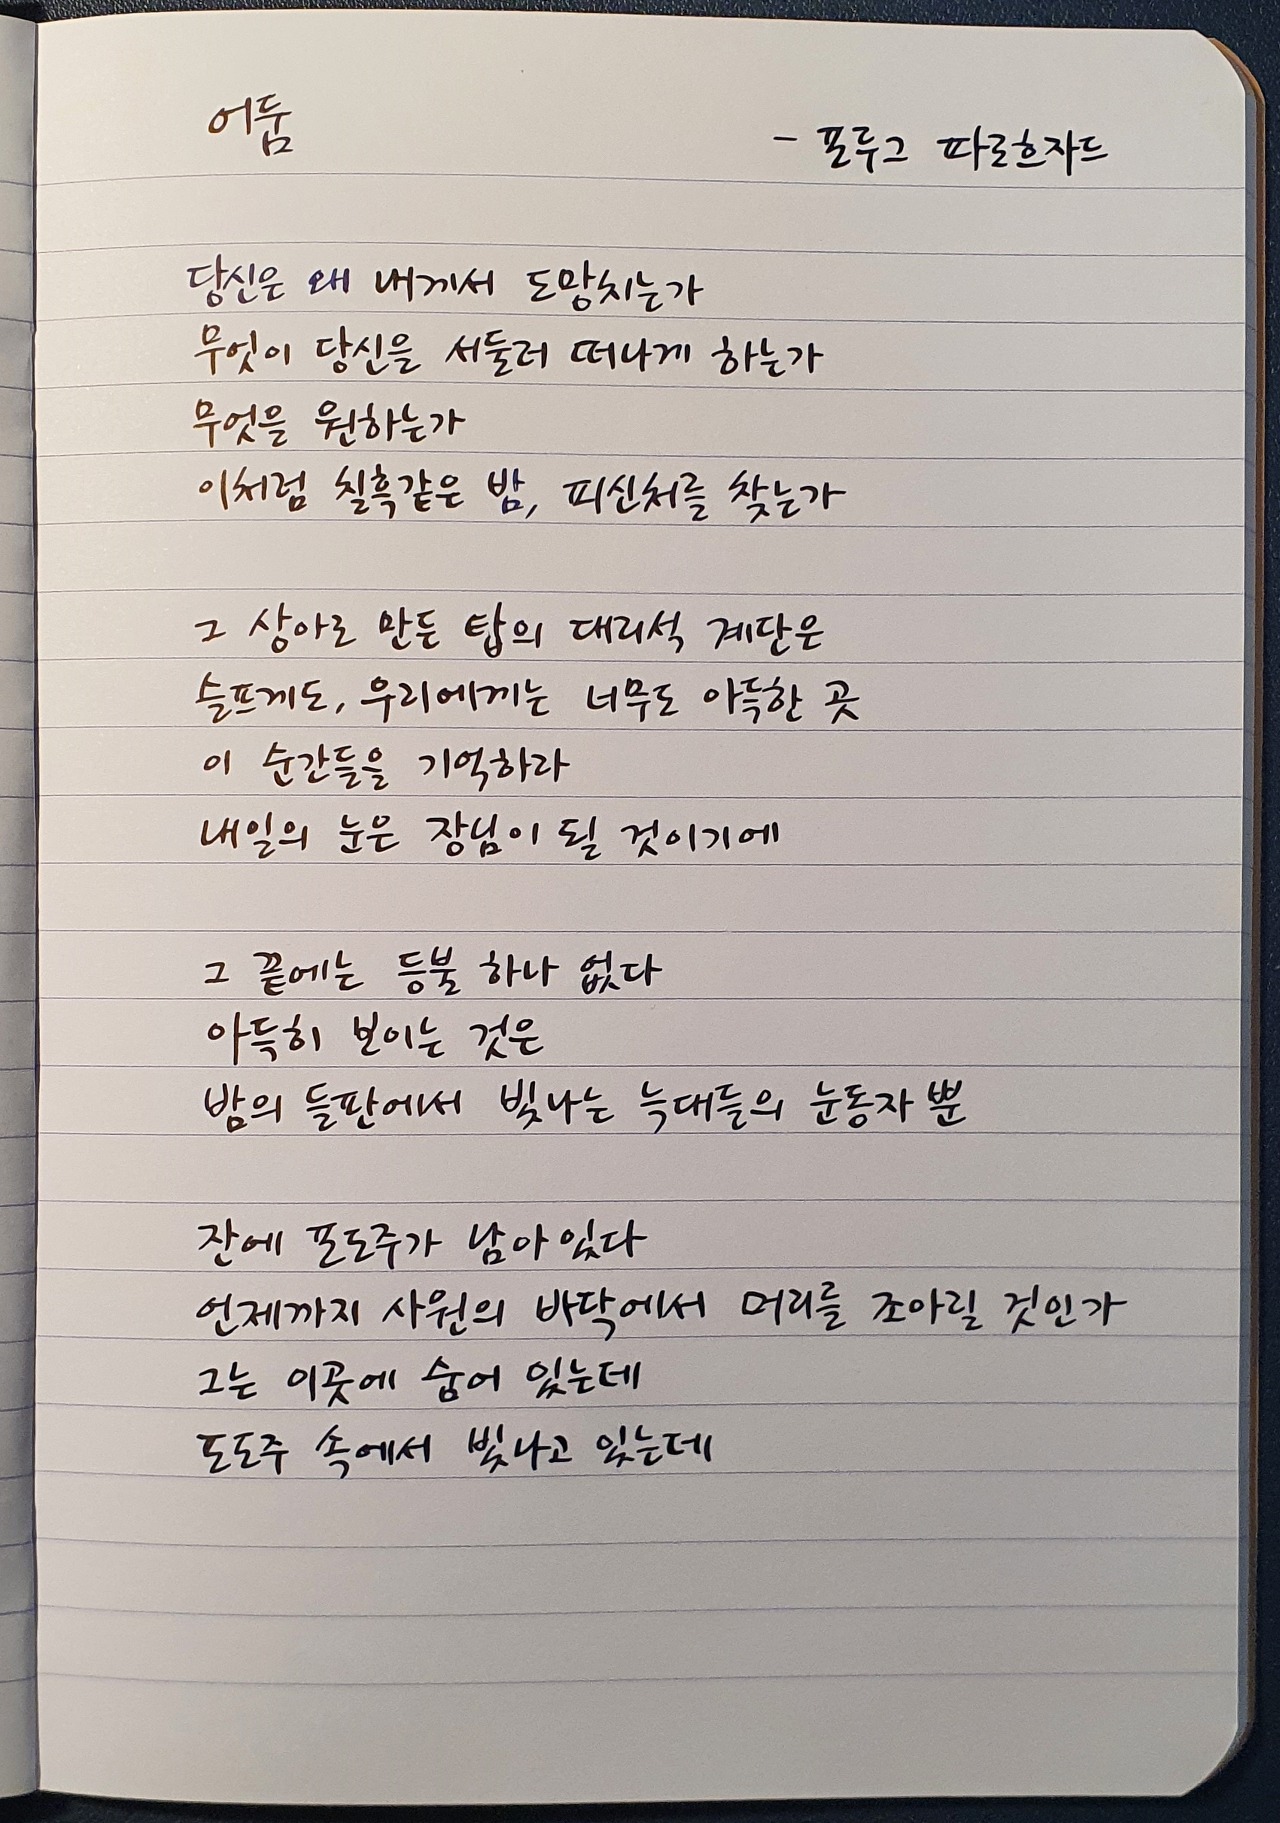 어둠
- 포루그 파로흐자드
당신은 왜 내게서 도망치는가
무엇이 당신을 서둘러 떠나게 하는가
무엇을 원하는가
이처럼 칠흑같은 밤, 피신처를 찾는가
그 상아로 만든 탑의 대리석 계단은
슬프게도, 우리에게는 너무도 아득한 곳
이 순간들을 기억하라
내일의 눈은 장님이 될 것이기에
그 끝에는 등불 하나 없다
아득히 보이는 것은
밤의 들판에서 빛나는 늑대들의 눈동자 뿐
잔에 포도주가 남아있다
언제까지 사원의 바닥에서 머리를 조아릴 것인가
그는 이곳에 숨어 있는데
포도주 속에서 빛나고 있는데